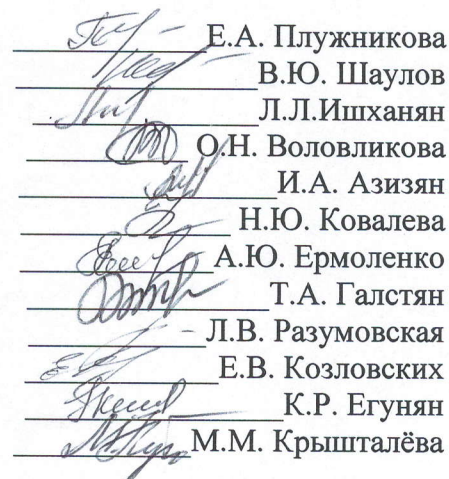 Е.А. Плужникова
В.Ю. Шаулов
Л.Л.Ишханян
О.Н. Воловликова
И.А. Азизян
Н.Ю. Ковалева
А.Ю. Ермоленко
Т.А. Галстян
Л.В. Разумовская
Е.В. Козловских
К.Р. Егунян
М.М. Крышталёва